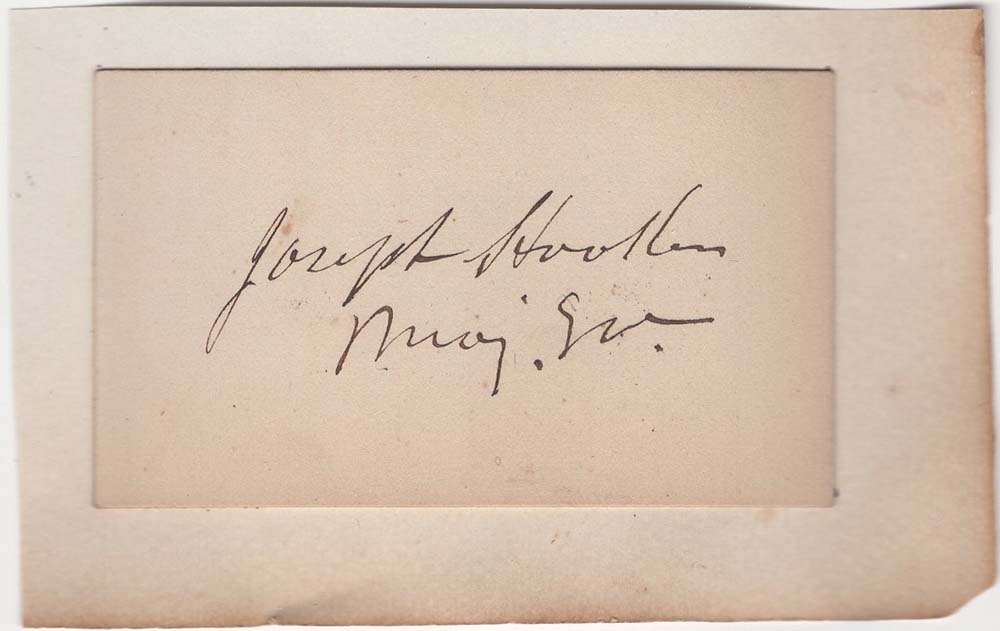 Joseph Hooker
Maj. Gen.